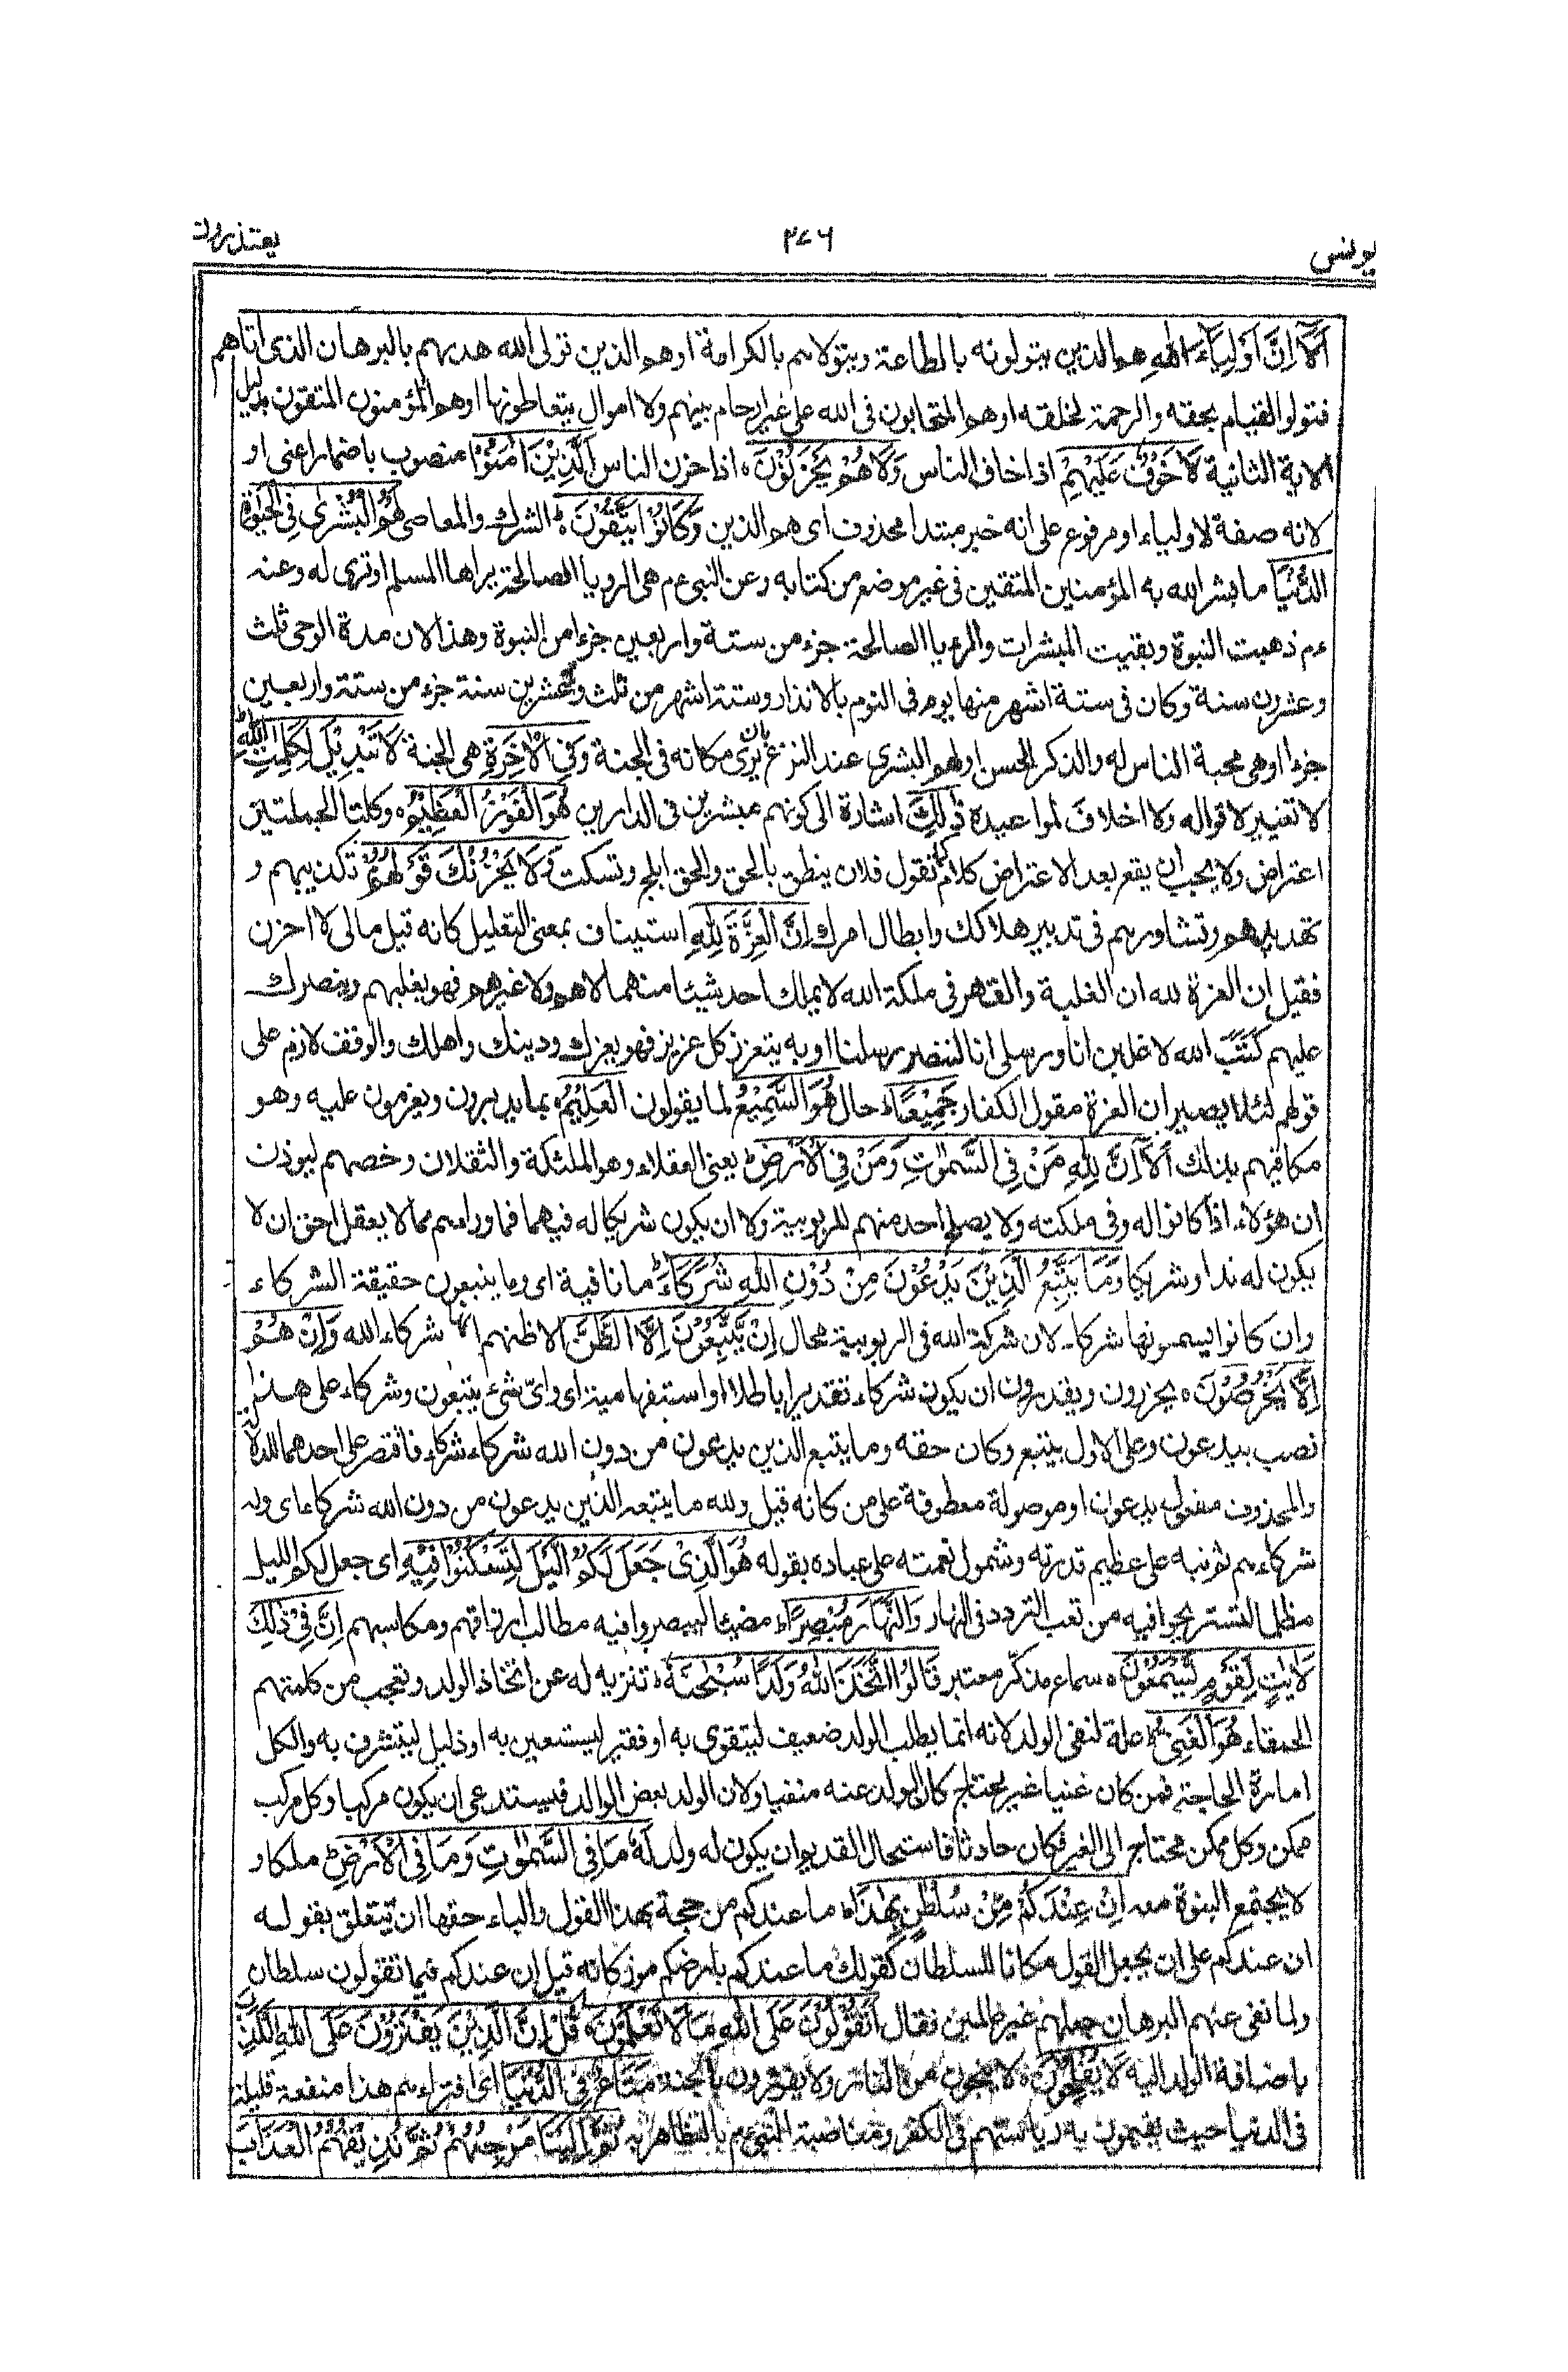 يونس ٣٧٦ يعتذرون
اَلَآ اِنَّ اَوْلِيَآءَ اللهِ هو الذين يتولونه بالطاعة ويتولاهم بالكرامة اوهم الذين تولى الله هدىهم بالبرهان الذى اتاهم
فتولوا القيام بحقه والرحمة لخلقه اوهم المتحابون فى الله على غير ارحام بينهم ولا اموال يتعاطونها اوهم المؤمنون المتقون بدليل
الاية الثانية لَا خَوْفٌ عَلَيْهِمْ اذا خاف الناس وَلَا هُمْ يَحْزَنُوْنَ ه اذا حزن الناس اَلَّذِيْنَ اٰمَنُوْا منصوب باضمار اعنى او
لانه صفة لاولياء او مرفوع على انه خبر مبتدا محذوف اى هم الذين وَكَانُوْا يَتَّقُوْنَ ه الشرك والمعاصى لَهُمُ الْبُشْرٰى فِى الْحَيٰوةِ
الدُّنْيَا ما بشر الله به المؤمنين المتقين فى غير موضع من كتابه وعن النبى ءم هى الرويا الصالحة يراها المسلم او ترى له وعنه
ءم ذهبت النبوة وبقيت المبشرات والرءيا الصالحة جزء من ستة واربعين جزءا من النبوة وهذا لان مدة الوحى ثلث
وعشرون سنة وكان فى ستة اشهر منها يومر فى النوم بالانذار وستة اشهر من ثلث وعشرين سنة جزء من ستة واربعين
جزءا اوهى محبة الناس له والذكر الحسن اولهم البشرى عند النزع بان يرى مكانه فى الجنة وَفِى الْاٰخِرَةِ هى الجنة لَا تَبْدِيْلَ لِكَلِمٰتِ اللّٰهِ
لا تغيير لاقواله ولا اخلاف لمواعيده ذٰلِكَ اشارة الى كونهم مبشرين فى الدارين هُوَ الْفَوْزُ الْعَظِيْمُ ه وكلتا الجملتين
اعتراض ولا يجب ان يقع بعد الاعتراض كلام كما تقول فلان ينطق بالحق والحق ابلج وتسكت وَلَا يَحْزُنْكَ قَوْلُهُمْ تكذيبهم و
تهديدهم وتشاورهم فى تدبير هلاكك وابطال امرك اِنَّ الْعِزَّةَ لِلّٰهِ استيناف بمعنى التعليل كانه قيل مالى لا احزن
فقيل ان العزة لله ان الغلبة والقهر فى ملكة الله لا يملك احد شيئا منهما لاهم ولا غيرهم فهو يغلبهم وينصرك
عليهم كَتَبَ الله لاغلبن انا ورسلى انا لننصر رسلنا او به يتعزز كل عزيز فهو يعزك ودينك واهلك والوقف لازم على
قولهم لئلا يصير ان العزة مقول الكفار جَمِيْعًا حال هُوَ السَّمِيْعُ لما يقولون الْعَلِيْمُ ه بما يدبرون ويعزمون عليه وهو
مكافيهم بذلك اَلَآ اِنَّ لِلّٰهِ مَنْ فِى السَّمٰوٰتِ وَمَنْ فِى الْاَرْضِ يعنى العقلاء وهم الملئكة والثقلان وخصهم ليوذن
ان هؤلاء اذا كانوا له وفى ملكته ولا يصلح احد منهم للربوبية ولا ان يكون شريكا له فيهما فما وراءهم مما لا يعقل احق ان لا
يكون له ندا وشريكا وَمَا يَتَّبِعُ الَّذِيْنَ يَدْعُوْنَ مِنْ دُوْنِ اللهِ شُرَكَآءَ ما نافية اى وما يتبعون حقيقة الشركاء
وان كانوا يسمونها شركاء لان شركة الله فى الربوبية محال اِنْ يَّتَّبِعُوْنَ اِلَّا الظَّنَّ الا ظنهم انها شركاء الله وَاِنْ هُمْ
اِلَّا يَخْرُصُوْنَ ه يحزرون ويقدرون ان يكون شركاء تقديرا باطلا او استفهامية اى واىّ شىء يتبعون وشركاء على هذا
نصب بيدعون وعلى الاول بيتبع وكان حقه وما يتبع الذين يدعون من دون الله شركاء شركاء فاقتصر على احدهما للدلالة
والمحذوف مفعول يدعون او موصولة معطوفة على من كانه قيل ولله ما يتبعه الذين يدعون من دون الله شركاء اى وله
شركاءهم ثم نبه على عظيم قدرته وشمول نعمته على عباده بقوله هُوَ الَّذِىْ جَعَلَ لَكُمُ الَّيْلَ لِتَسْكُنُوْا فِيْهِ اى جعل لكم الليل
مظلما لتستريحوا فيه من تعب التردد فى النهار وَالنَّهَارَ مُبْصِرًا مضيئا لتبصروا فيه مطالب ارزاقهم ومكاسبهم اِنَّ فِىْ ذٰلِكَ
لَاٰيٰتٍ لِّقَوْمٍ يَّسْمَعُوْنَ ه سماع مذكر معتبر قَالُوا اتَّخَذَ اللهُ وَلَدًا سُبْحٰنَهٗ تنزيه له عن اتخاذ الولد وتعجب من كلمتهم
الحمقاء هُوَ الْغَنِىُّ علة لنفى الولد لانه انما يطلب الولد ضعيف ليتقوى به او فقير ليستعين به او ذليل ليتشرف به والكل
امارة الحاجة فمن كان غنيا غير محتاج كان الولد عنه منفيا ولان الولد بعض الوالد فيستدعى ان يكون مركبا وكل مركب
ممكن وكل ممكن محتاج الى الغير فكان حادثا فاستحال القديم ان يكون له ولد لَهٗ مَا فِى السَّمٰوٰتِ وَمَا فِى الْاَرْضِ ملكا و
لا يجتمع البنوة معه اِنْ عِنْدَكُمْ مِّنْ سُلْطٰنٍ بِهٰذَا ما عندكم من حجة بهذا القول والباء حقها ان يتعلق بقوله
ان عندكم على ان يجعل القول مكانا للسلطان كقولك ما عندكم بارضكم موز كانه قيل ان عندكم فيما تقولون سلطان
ولما نفى عنهم البرهان جعلهم غير عالمين فقال اَتَقُوْلُوْنَ عَلَى اللهِ مَا لَا تَعْلَمُوْنَ ه قُلْ اِنَّ الَّذِيْنَ يَفْتَرُوْنَ عَلَى اللهِ الْكَذِبَ
باضافة الولد اليه لَا يُفْلِحُوْنَ ه لا ينجون من النار ولا يفوزون بالجنة مَتَاعٌ فِى الدُّنْيَا اى افتراءهم هذا منفعة قليلة
فى الدنيا حيث يقيمون به رياستهم فى الكفر ومناصبة النبى ءم بالتظاهر به ثُمَّ اِلَيْنَا مَرْجِعُهُمْ ثُمَّ نُذِيْقُهُمُ الْعَذَابَ